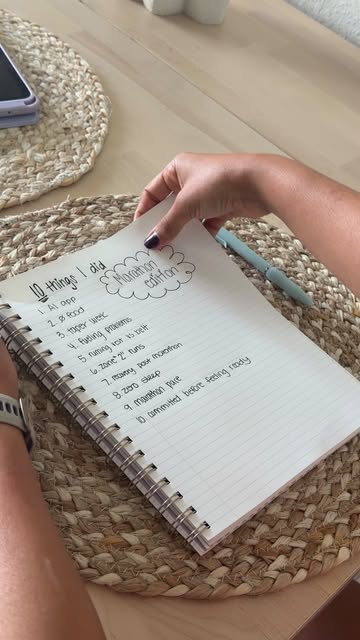 10 things I did
Marathon
edition
1. AI app
2. Ø food
3. taper week
4. fueling problems
6. zone "2" runs
7. recovery post marathon
8. zero sleep
9. marathon pace
10. committed before feeling ready